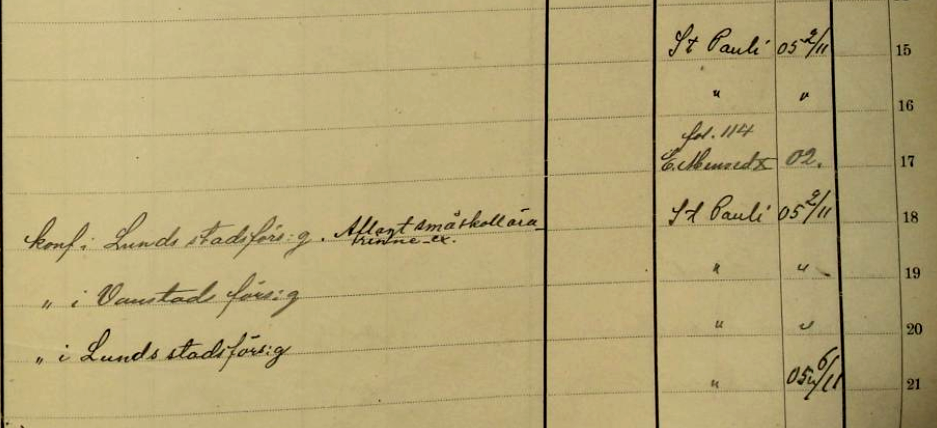 St Pauli 05 2/11 15
" " 16
fol. 114
02. 17
konf. i Lunds stadsförs:g. Aflagt småskollära-
rinne-ex. St Pauli 05 2/11 18
" i Vanstads förs:g " " 19
" i Lunds stadsförs:g " " 20
" 05 6/11 21